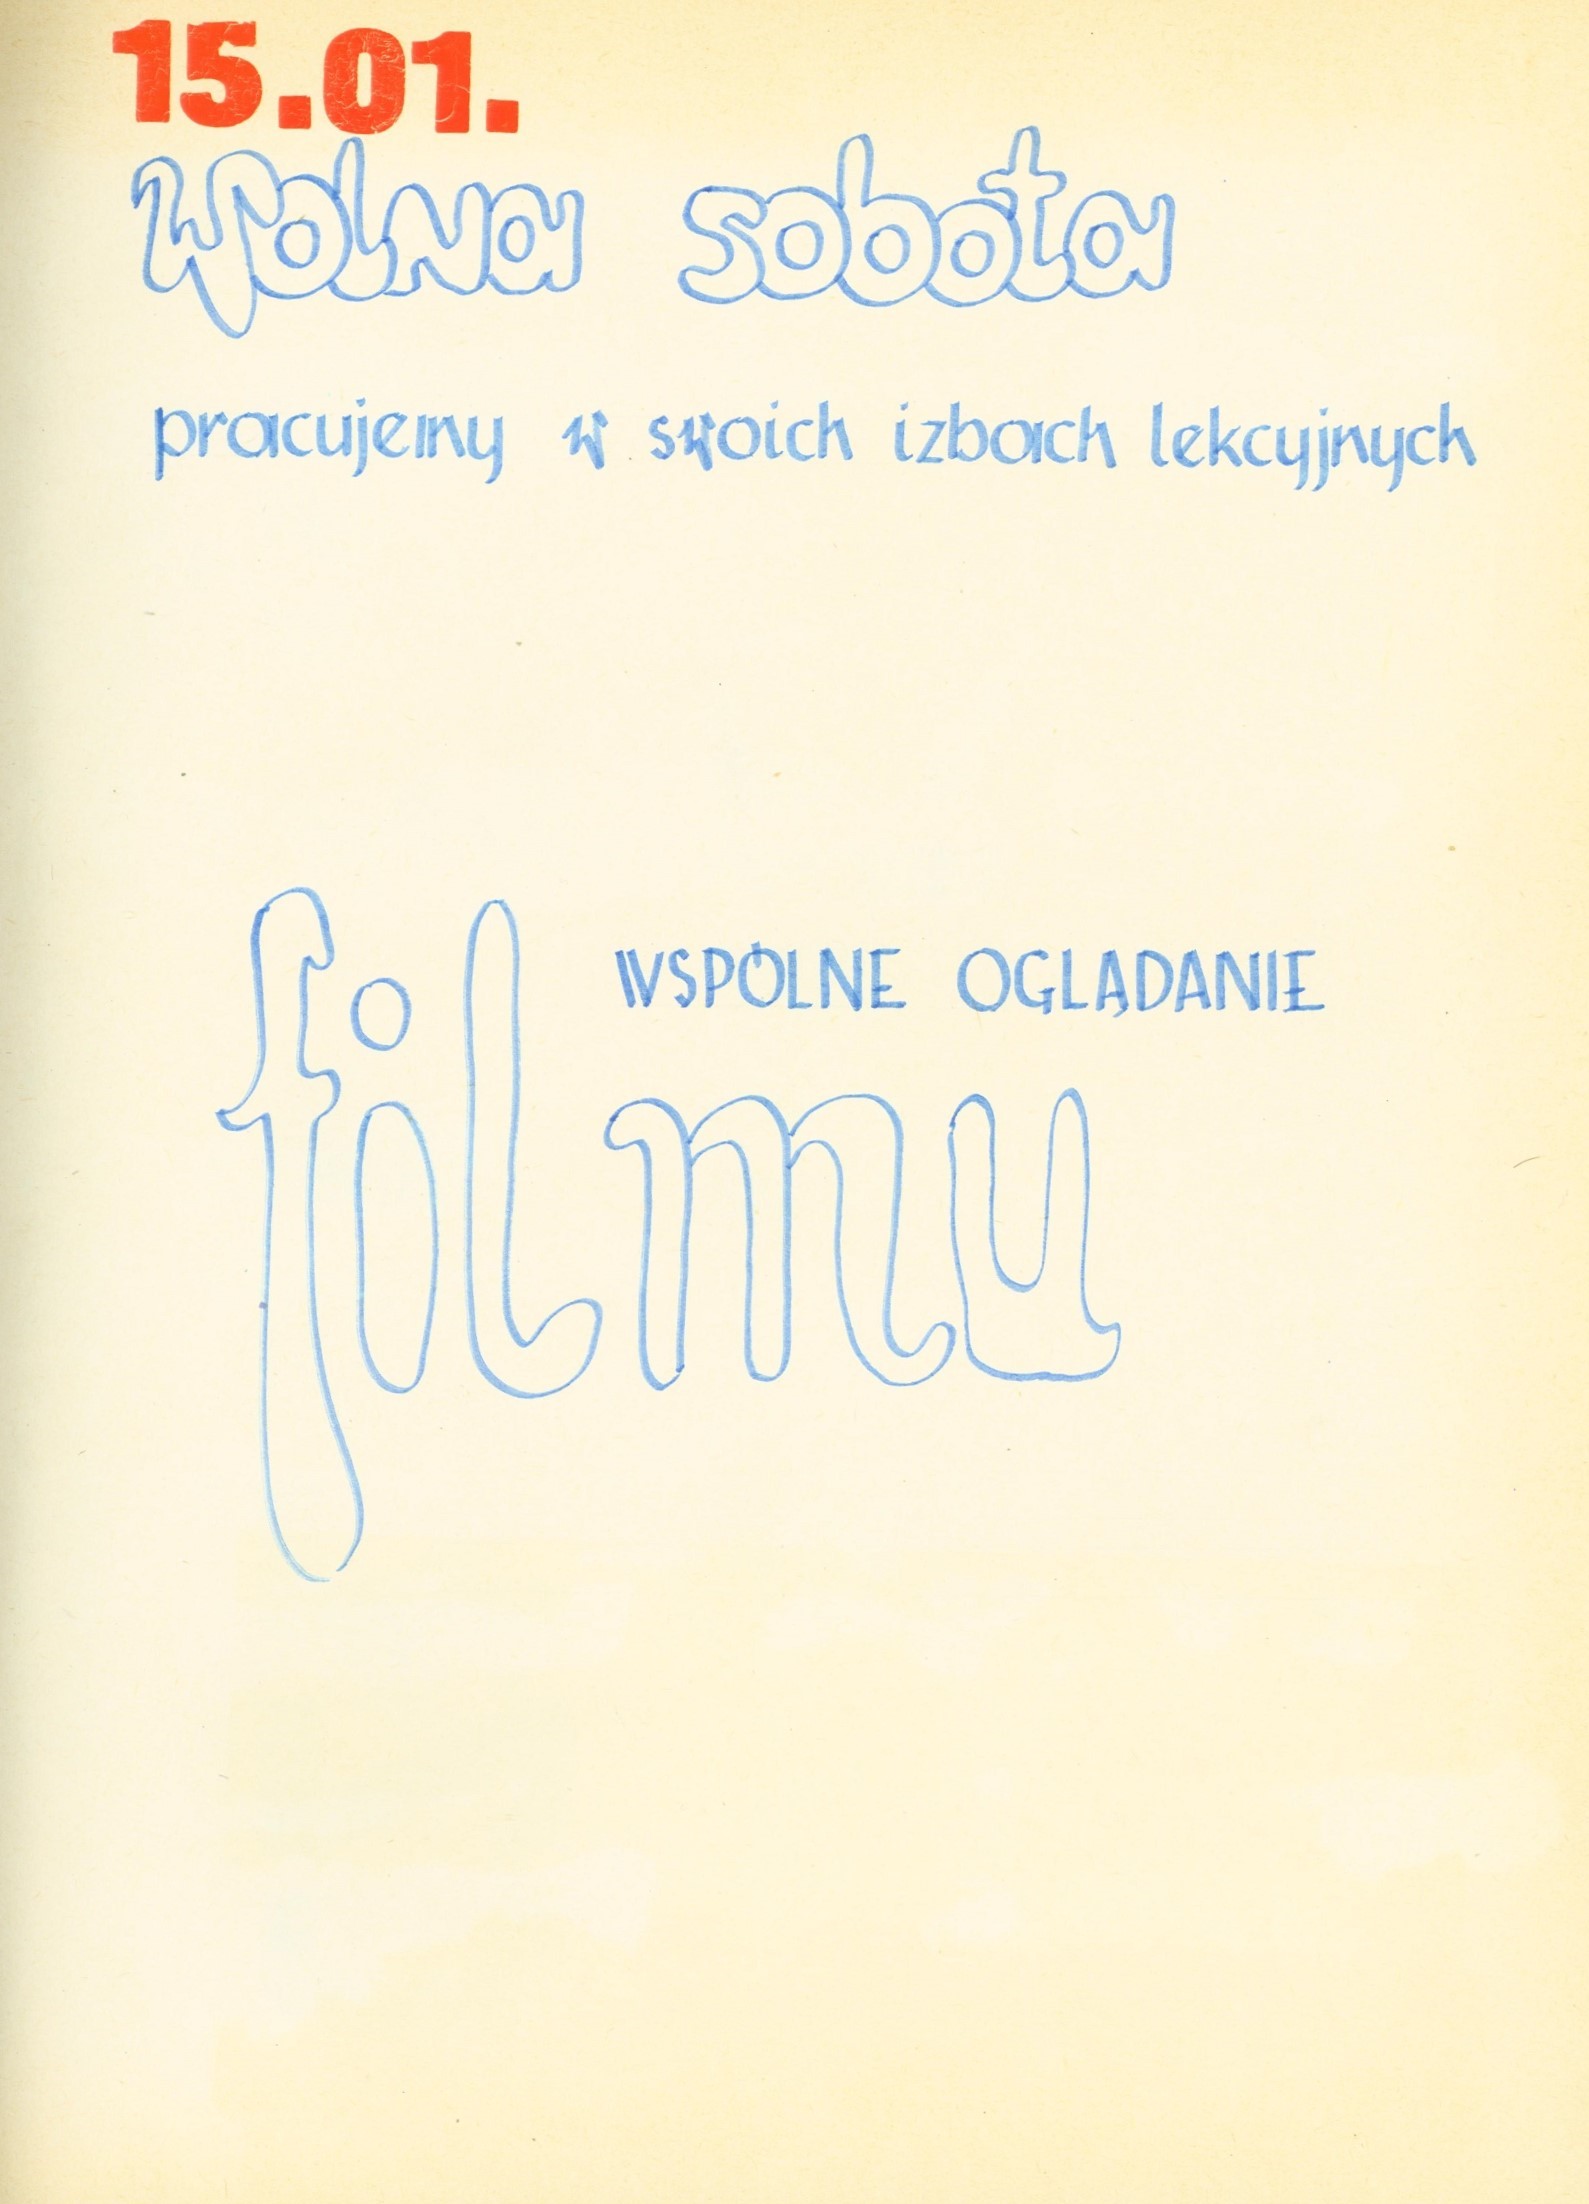 15.01.
Wolna sobota
pracujemy w swoich izbach lekcyjnych
WSPÓLNE OGLĄDANIE
filmu